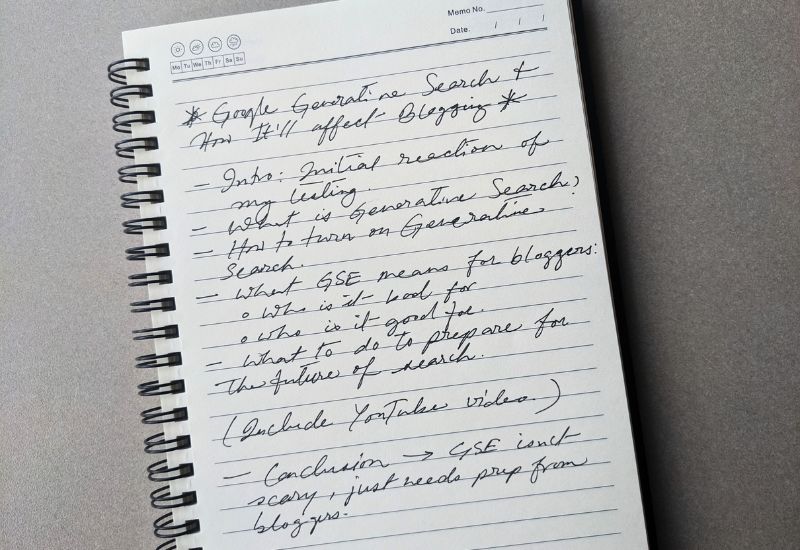 Memo No.
Date. / / /
Mo Tu We Th Fr Sa Su
* Google Generative Search +
How It'll affect Blogging *
- Intro: Initial reaction of
my testing.
- What is Generative Search?
- How to turn on Generative
Search.
- What GSE means for bloggers:
o Who is it bad for
o who is it good for.
- What to do to prepare for
the future of search.
(Include YouTube video.)
- Conclusion → GSE isn't
scary, just needs prep from
bloggers.